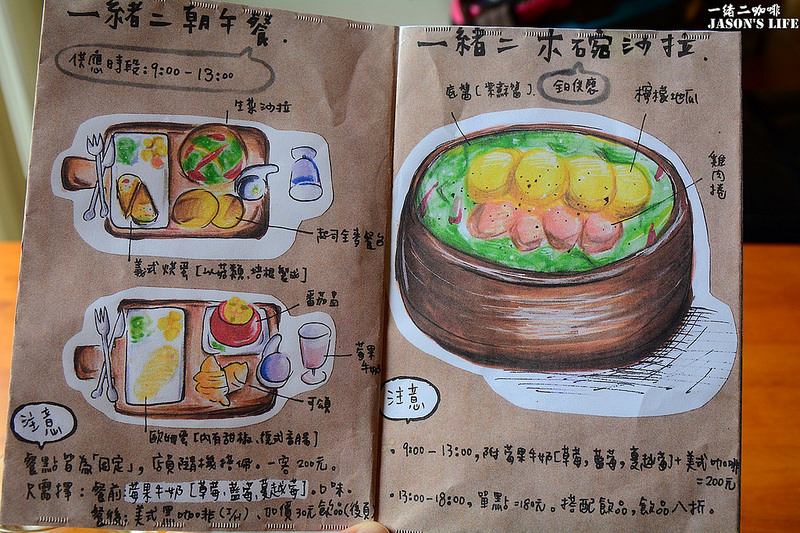 一緒二咖啡
JASON'S LIFE
一緒二朝午餐.
供應時段:9:00-13:00
生菜沙拉
起司全麥餐包
義式烘蛋[以菇類.培根製出]
番茄盅
莓果
牛奶
可頌
歐姆蛋[內有甜椒、德式香腸]
注意
餐點皆為「固定」,店員隨機搭佩。一客200元。
只需擇:餐前:莓果牛奶[草莓,藍莓,蔓越莓]。口味。
餐後:美式黑咖啡、加價30元飲品(後頁
一緒二木碗沙拉.
底醬[紫蘇醬].
全日供應
檸檬地瓜
雞肉捲
注意
·9:00-13:00,附莓果牛奶[草莓,藍莓,蔓越莓]+美式咖啡
=200元
·13:00-18:00,單點=180元。搭配飲品,飲品八折.